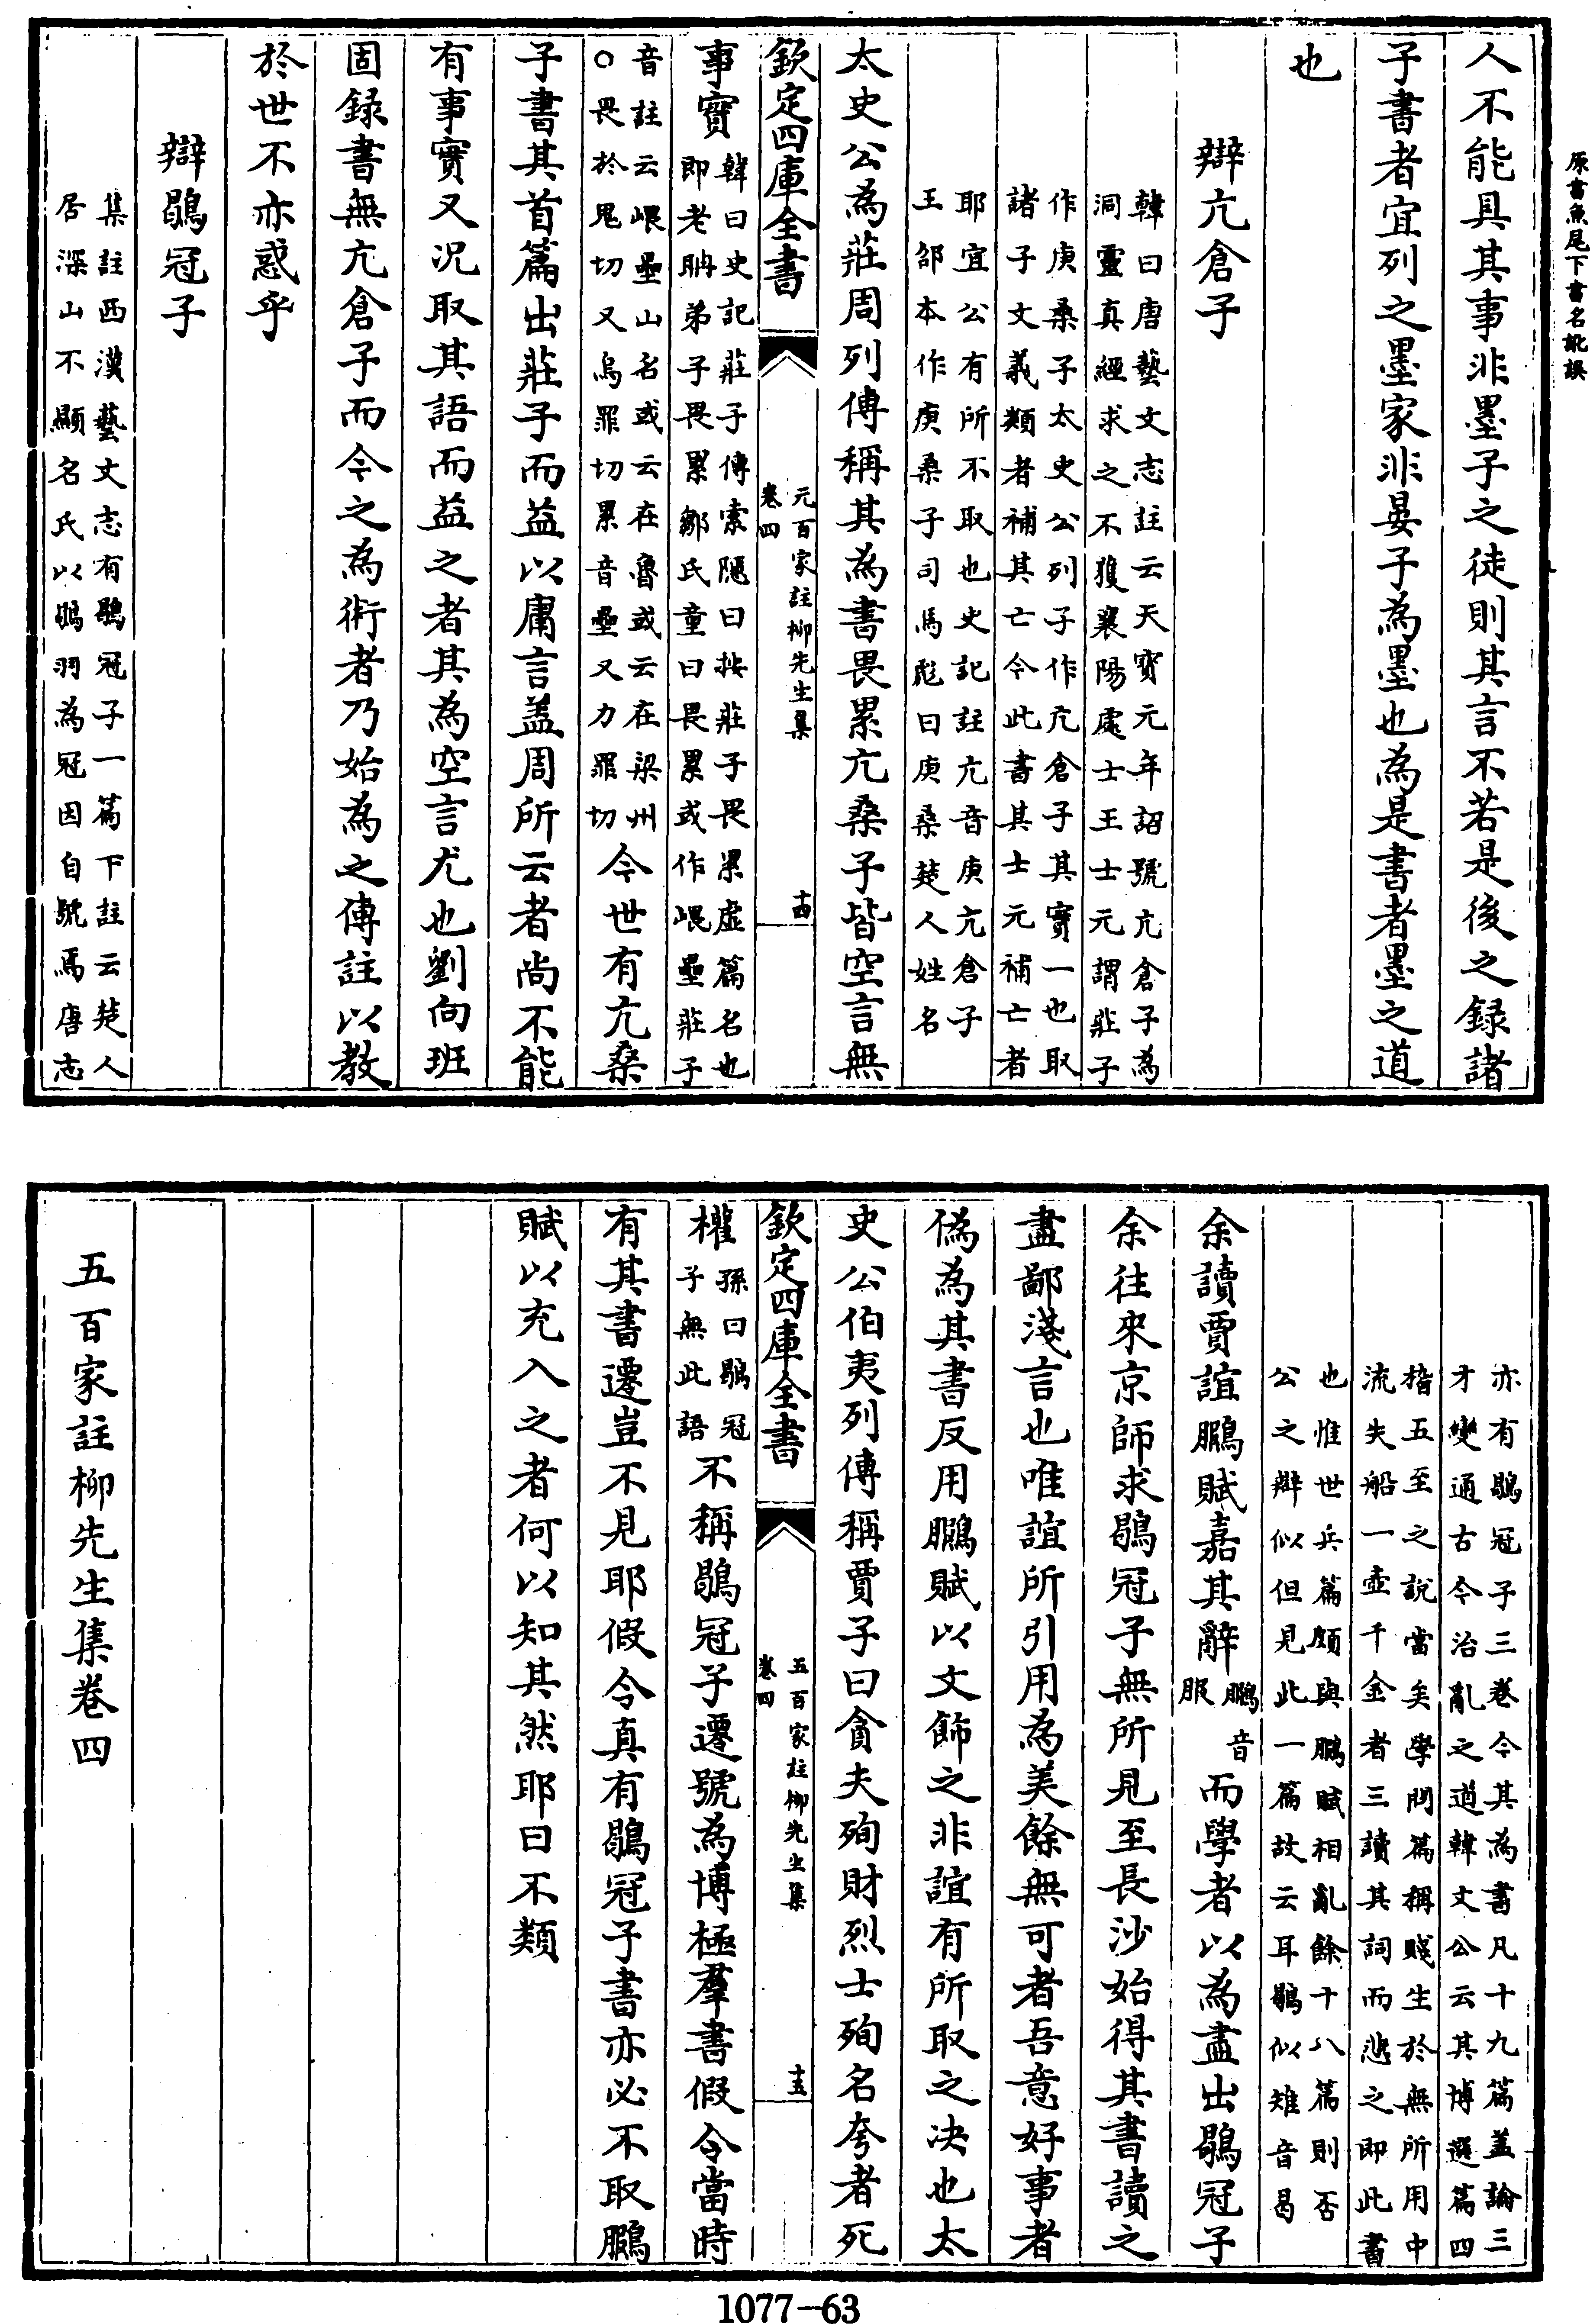 原書魚尾下書名訛誤
人不能具其事非墨子之徒則其言不若是後之錄諸
子書者宜列之墨家非晏子為墨也為是書者墨之道
也
辯亢倉子
韓曰唐藝文志註云天寶元年詔號亢倉子為
洞靈真經求之不獲襄陽處士王士元謂莊子
作庚桑子太史公列子作亢倉子其實一也取
諸子文義類者補其亡今此書其士元補亡者
耶宜公有所不取也史記註亢音庚亢倉子
王邵本作庚桑子司馬彪曰庚桑楚人姓名
太史公為莊周列傳稱其為書畏累亢桑子皆空言無
欽定四庫全書
元百家註柳先生集
卷四
十四
事實
韓曰史記莊子傳索隱曰按莊子畏累虛篇名也
即老聃弟子畏累鄒氏童曰畏累或作㟪壘莊子
音註云㟪壘山名或云在魯或云在梁州
○畏於鬼切又烏罪切累音壘又力罪切
今世有亢桑
子書其首篇出莊子而益以庸言蓋周所云者尚不能
有事實又況取其語而益之者其為空言尤也劉向班
固錄書無亢倉子而今之為術者乃始為之傳註以教
於世不亦惑乎
辯鶡冠子
集註西漢藝文志有鶡冠子一篇下註云楚人
居深山不顯名氏以鶡羽為冠因自號焉唐志
亦有鶡冠子三卷今其為書凡十九篇蓋論三
才變通古今治亂之道韓文公云其博選篇四
稽五至之說當矣學問篇稱賤生於無所用中
流失船一壺千金者三讀其詞而悲之即此書
也惟世兵篇頗與鵩賦相亂餘十八篇則否
公之辯似但見此一篇故云耳鶡似雉音曷
余讀賈誼鵩賦嘉其辭
鵩音
服
而學者以為盡出鶡冠子
余往來京師求鶡冠子無所見至長沙始得其書讀之
盡鄙淺言也唯誼所引用為美餘無可者吾意好事者
偽為其書反用鵩賦以文飾之非誼有所取之决也太
史公伯夷列傳稱賈子曰貪夫殉財烈士殉名夸者死
欽定四庫全書
五百家註柳先生集
卷四
十五
權
孫曰鶡冠
子無此語
不稱鶡冠子遷號為博極羣書假令當時
有其書遷豈不見耶假令真有鶡冠子書亦必不取鵩
賦以充入之者何以知其然耶曰不類
五百家註柳先生集卷四
1077—63